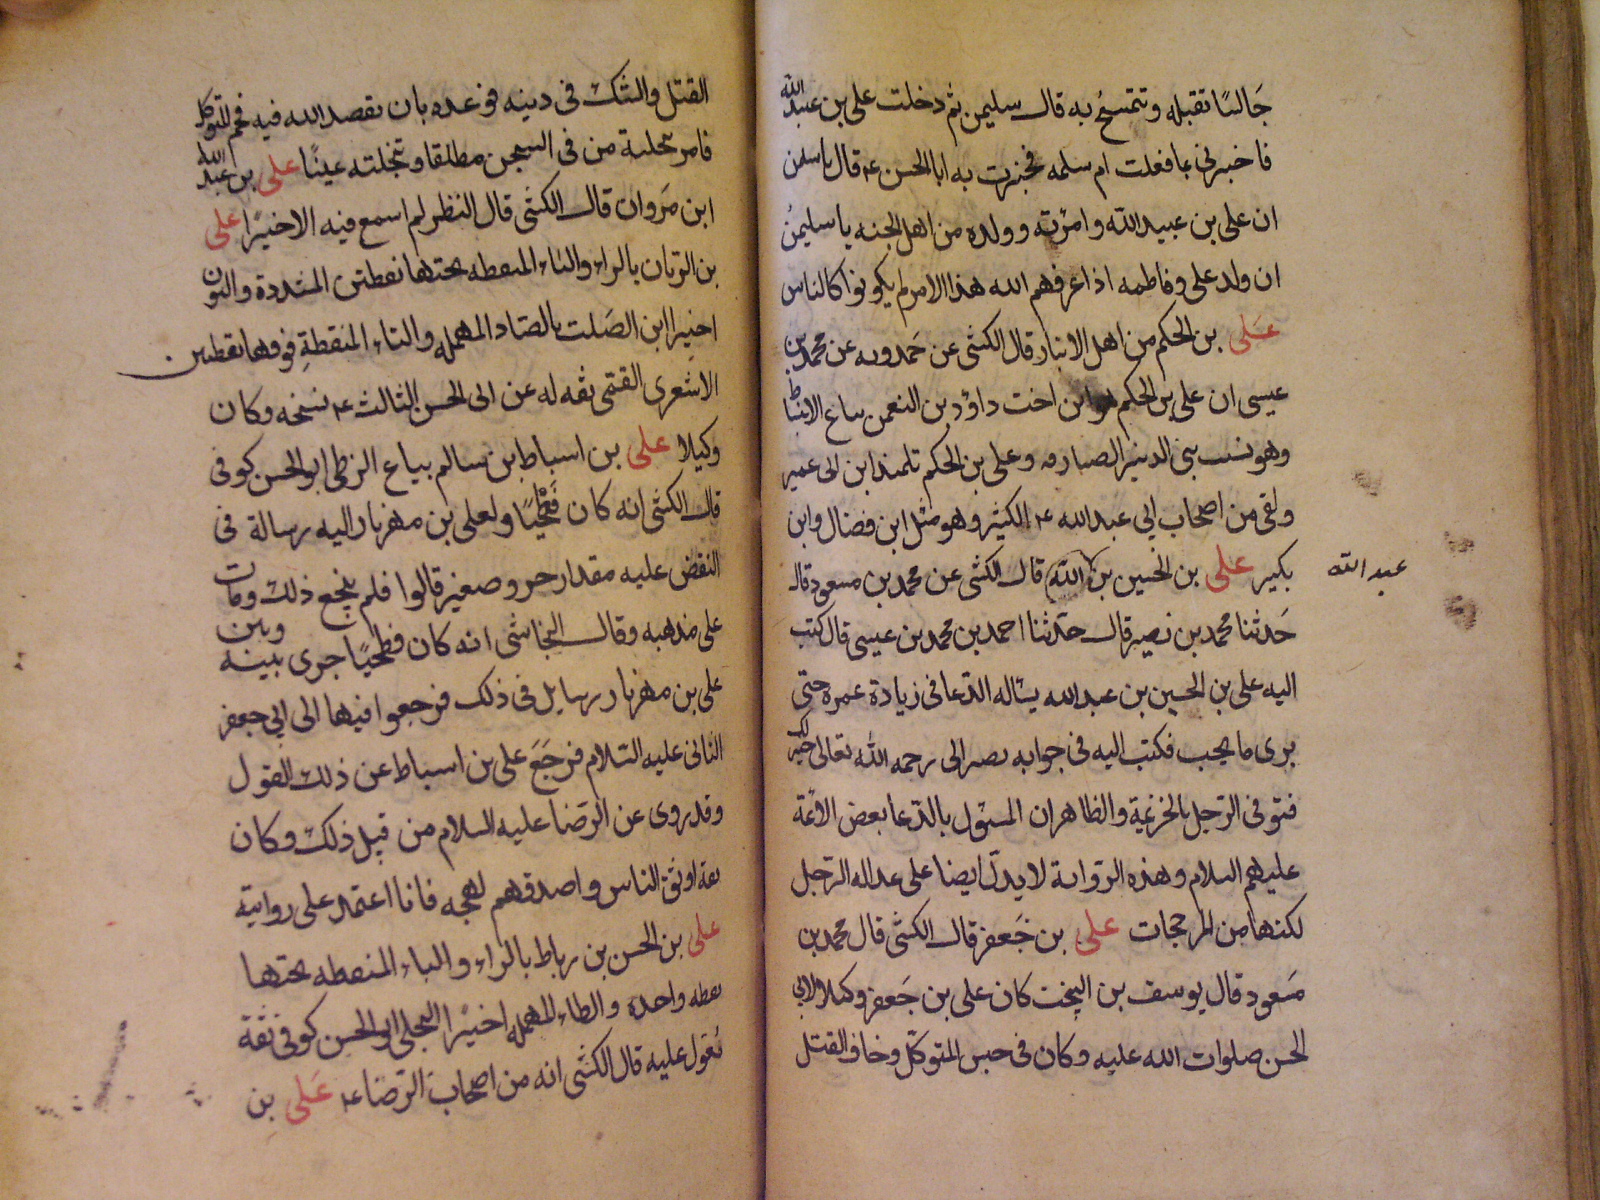 جالسا تقبله وتتمسح به قال سليمن ثم دخلت على بن عبيد الله
فاخبرنى بما فعلت ام سلمه فخبرت به ابا الحسن ع قال يا سليمن
ان على بن عبيد الله وامرته وولده من اهل الجنه يا سليمن
ان ولد على وفاطمه اذا عرفهم الله هذا الامر لم يكونوا كالناس
على بن الحكم من اهل الانبار قال الكشى عن حمدويه عن محمد بن
عيسى ان على بن الحكم هو ابن اخت داؤد بن النعمن بياع الانماط
وهو نسب بنى الدنير الصيارفه وعلى بن الحكم تلميذ ابن ابى عمير
ولقى من اصحاب ابي عبد الله ع الكثير وهو مثل ابن فضال وابن
بكير على بن الحسين بن الله قال الكشى عن محمد بن مسعود قال
عبد الله
حدثنا محمد بن نصير قال حدثنا احمد بن محمد بن عيسى قال كتب
اليه على بن الحسين بن عبد الله يسئاله الدعا فى زيادة عمره حتى
يرى ما يحب فكتب اليه فى جوابه يصير الى رحمه الله تعالى خير لك
فتوفى الرجل بالخزيمية والظاهر ان المسئول بالدعا بعض الائمة
عليهم السلام وهذه الرواية لا يدل ايضا على عداله الرجل
لكنها من المرجحات على بن جعفر قال الكشى قال محمد بن
مسعود قال يوسف بن السخت كان على بن جعفر وكيلا لابي
الحسن صلوات الله عليه وكان فى حبس المتوكل وخاف القتل
القتل والشك فى دينه فوعده بان يقصد الله فيه فحم المتوكل
فامر بتخلية من فى السجن مطلقا وبتخليته عينا على بن عبد الله
ابن مروان قال الكشى قال النظر لم اسمع فيه الا خيرا على
بن الريان بالراء والياء المنقطه تحتها نقطتين المشددة والنون
اخيرا ابن الصلت بالصاد المهمله والتاء المنقطة فوقها نقطتين
الاشعرى القمى ثقه له عن ابى الحسن الثالث ع نسخه وكان
وكيلا على بن اسباط بن سالم بياع الزطى ابو الحسن كوفى
قال الكشى انه كان فطحيا ولعلى بن مهزيار اليه رسالة فى
النقض عليه مقدار جزو صغير قالوا فلم ينجع ذلك ومات
على مذهبه وقال النجاشى انه كان فطحيا جرى بينه وبين
على بن مهزيار رسايل فى ذلك فرجعوا فيها الى ابى جعفر
الثانى عليه السلام فرجع على بن اسباط عن ذلك القول
وقد روى عن الرضا عليه السلام من قبل ذلك وكان
ثقة اوثق الناس واصدقهم لهجه فانا اعتمد على روايته
على بن الحسن بن رباط بالراء والباء المنقطه تحتها
نقطه واحده والطاء المهمله اخيرا البجلى ابو الحسن كوفى ثقة
نعول عليه قال الكشى انه من اصحاب الرضا ع على بن